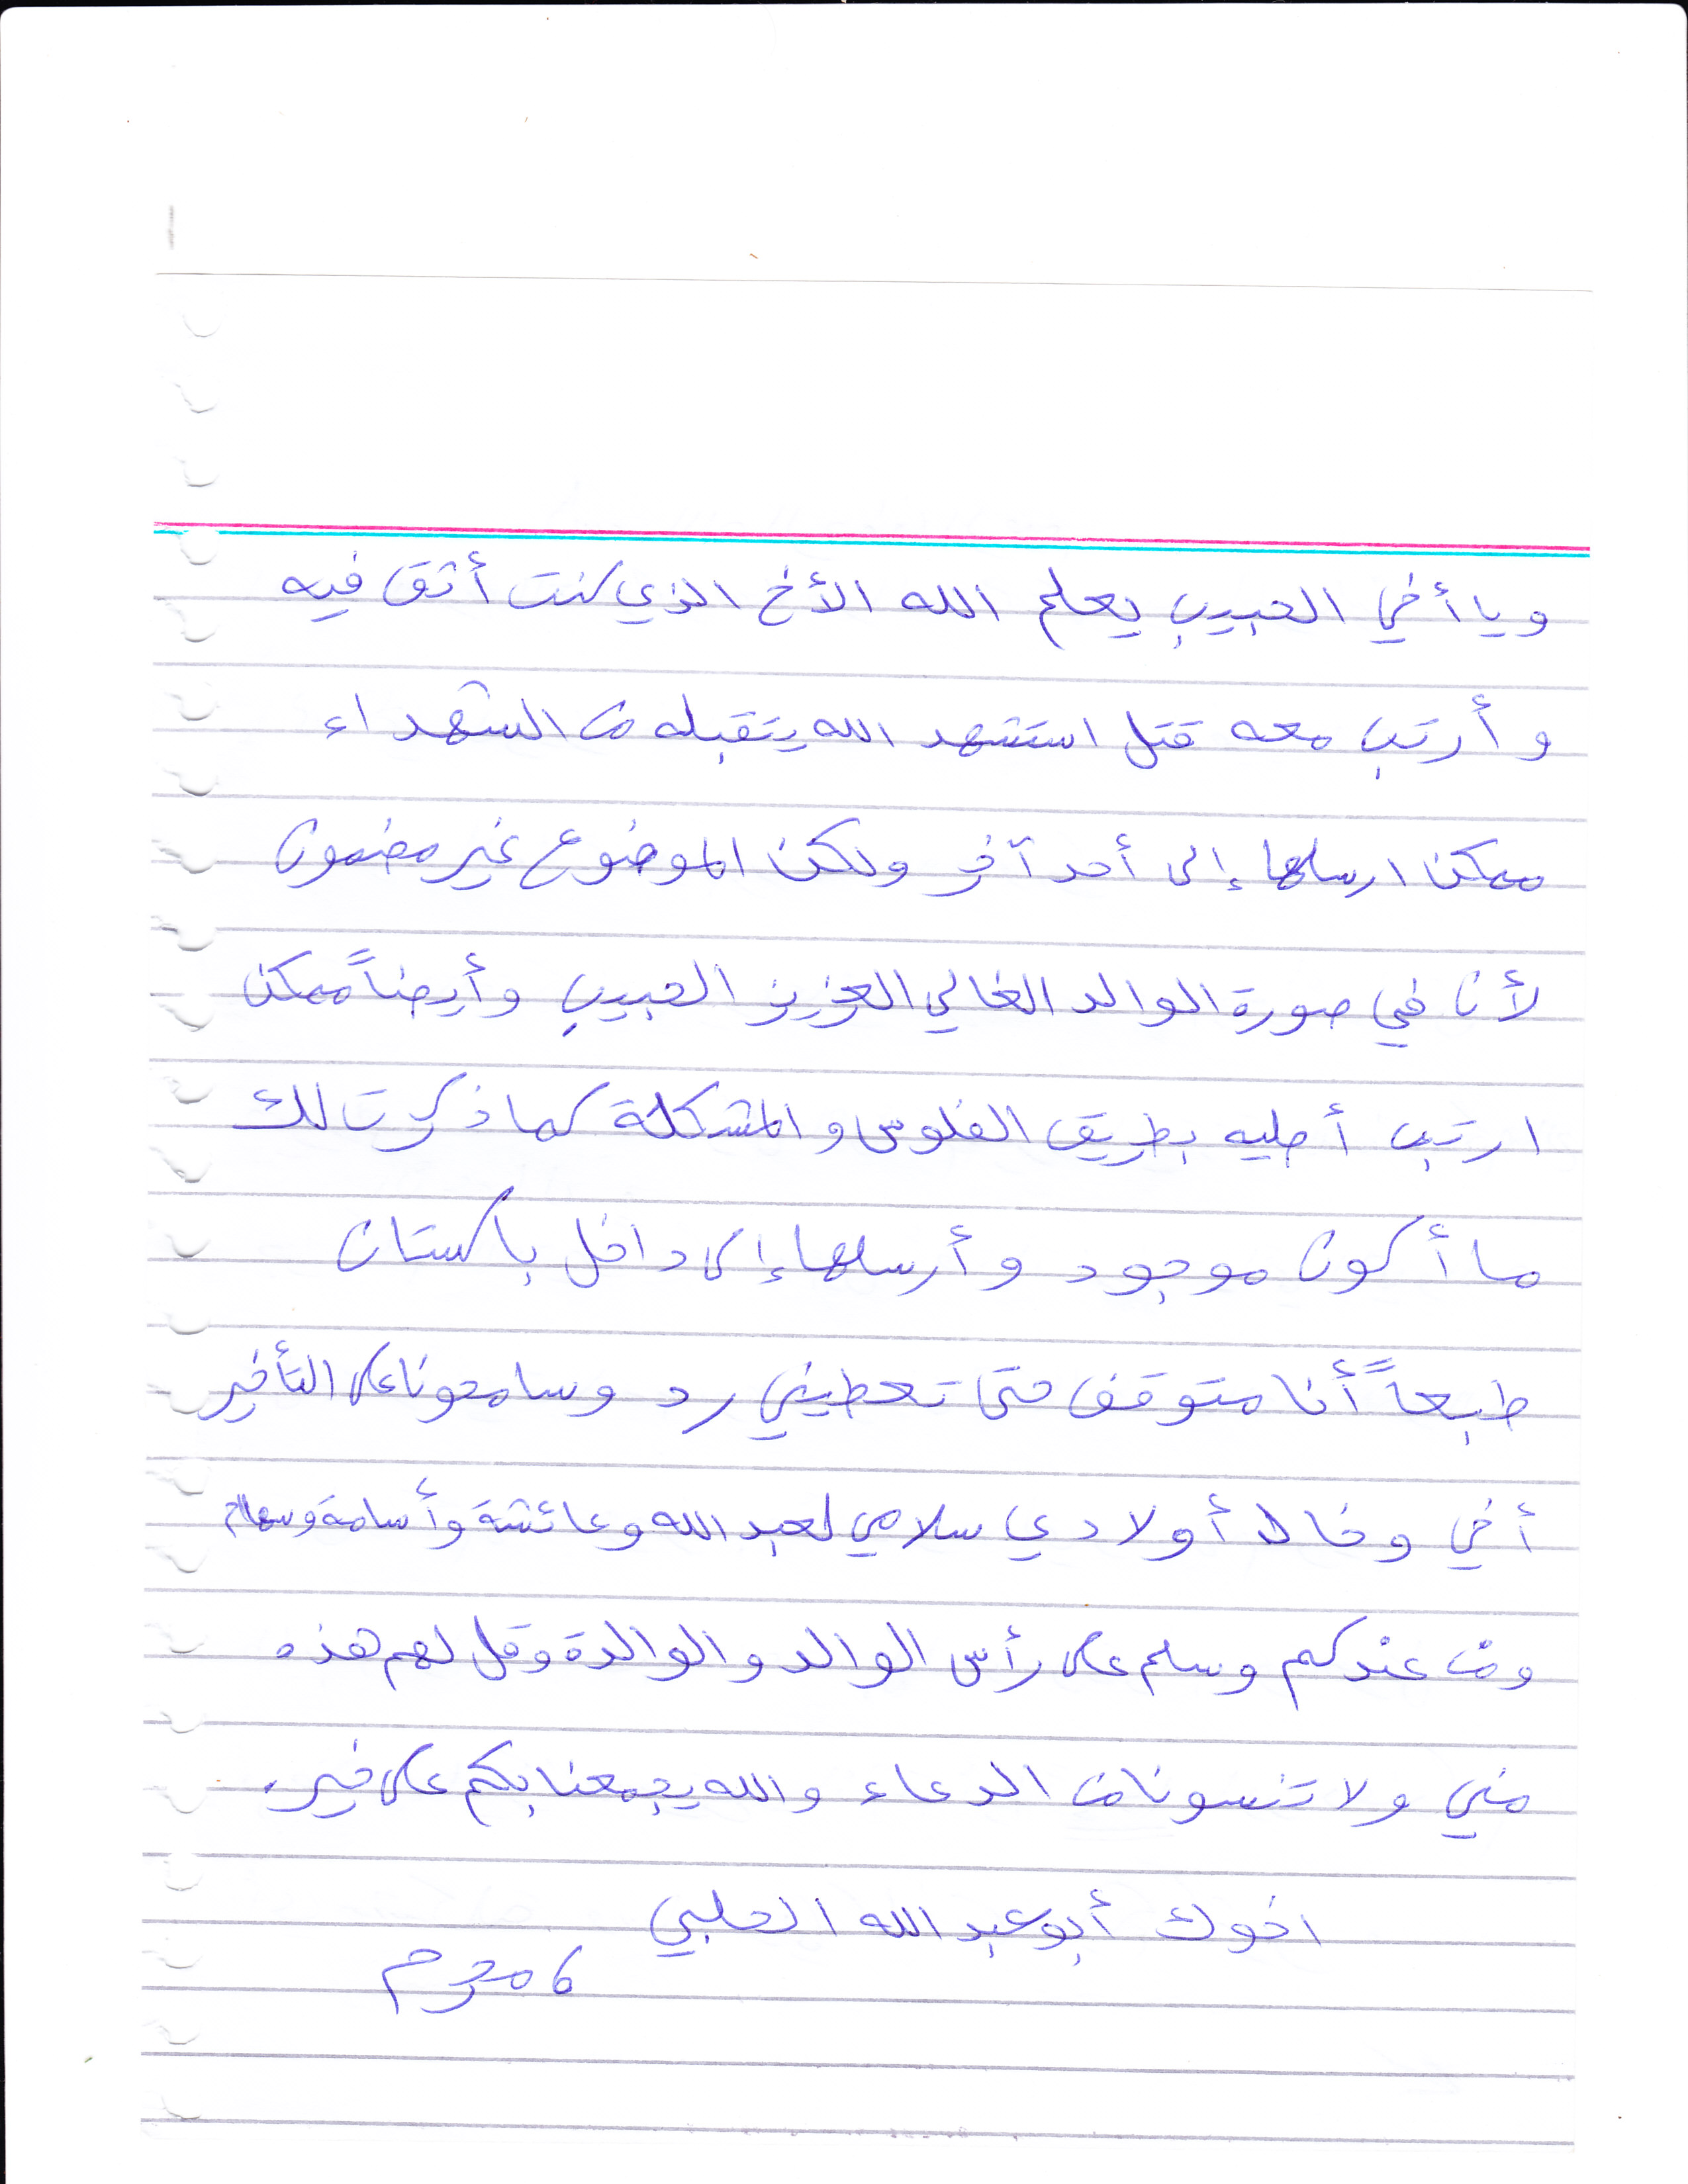 ويا أخي الحبيب يعلم الله الأخ الذي كنت أثق فيه
وأرتب معه قتل استشهد الله يتقبله من الشهداء
ممكن ارسلها إلى أحد آخر ولكن الموضوع غير مضمون
لأن في صورة الوالد الغالي العزيز الحبيب وأيضاً ممكن
ارتب أجليه بطريق الفلوس والمشكلة كما ذكرت لك
ما أكون موجود وأرسلها إلى داخل باكستان
طبعاً أنا متوقف حتى تعطيني رد وسامحونا على التأخير
أخي وخال أولادي سلامي لعبد الله وعائشة وأسامة وسهام
ومن عندكم وسلم على رأس الوالد والوالدة وقل لهم هذه
مني ولا تنسونا من الدعاء والله يجمعنا بكم على خير.
اخوك أبو عبد الله الحلبي
٦ محرم